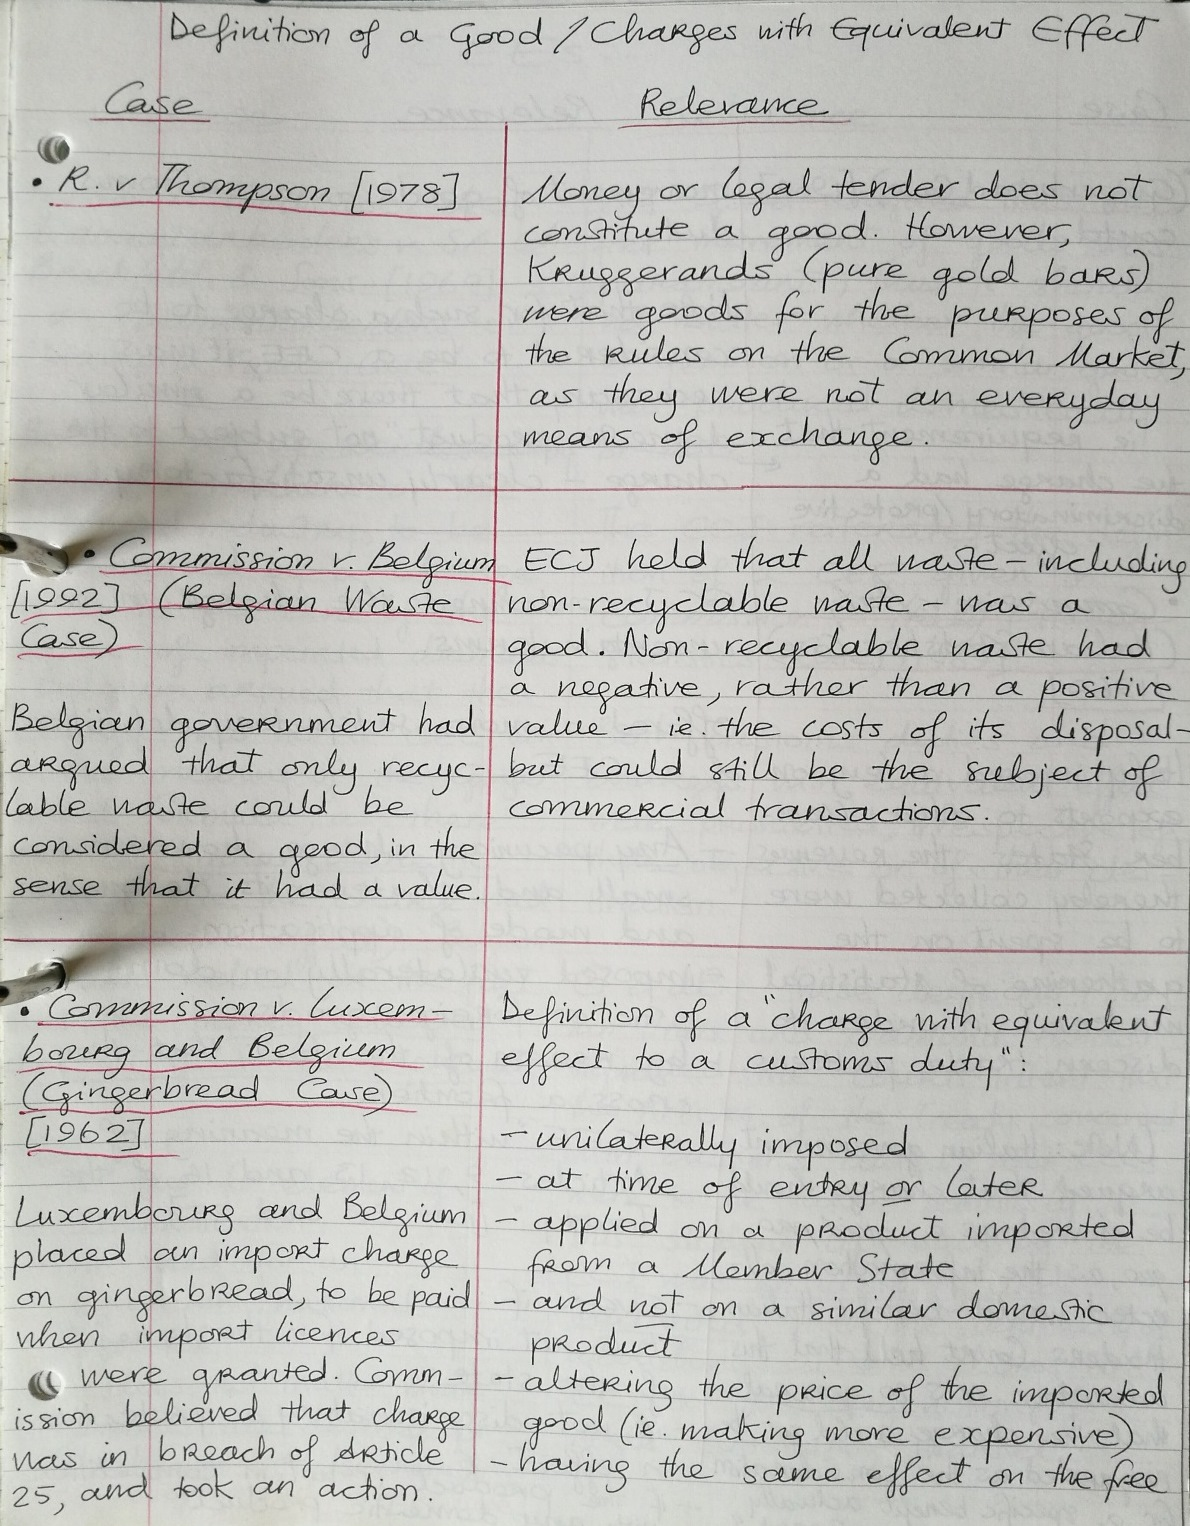 Definition of a Good / Charges with Equivalent Effect
Case
Relevance
• R. v Thompson [1978]
Money or legal tender does not
constitute a good. However,
Kruggerands (pure gold bars)
were goods for the purposes of
the rules on the Common Market,
as they were not an everyday
means of exchange.
• Commission v. Belgium
[1992] (Belgian Waste
Case)
Belgian government had
argued that only recyc-
lable waste could be
considered a good, in the
sense that it had a value.
ECJ held that all waste – including
non-recyclable waste – was a
good. Non-recyclable waste had
a negative, rather than a positive
value – ie. the costs of its disposal-
but could still be the subject of
commercial transactions.
• Commission v. Luxem-
bourg and Belgium
(Gingerbread Case)
[1962]
Luxembourg and Belgium
placed an import charge
on gingerbread, to be paid
when import licences
were granted. Comm-
ission believed that charge
was in breach of Article
25, and took an action.
Definition of a "charge with equivalent
effect to a customs duty":
- unilaterally imposed
- at time of entry or later
- applied on a product imported
from a Member State
- and not on a similar domestic
product
- altering the price of the imported
good (ie. making more expensive)
- having the same effect on the free